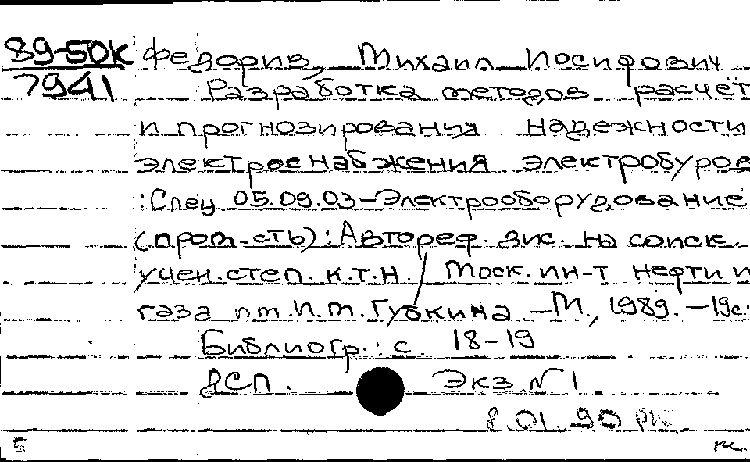 89-50К Федорив, Михаил Иосифович
7941 Разработка методов расчёт
и прогнозирования надежности
электроснабжения электробуров
: Спец. 05.09.03 – Электрооборудование
(пром-сть) : Автореф. дис. на соиск.
учен. степ. к.т.н. / Моск. ин-т нефти и
газа им. И.М. Губкина – М., 1989. – 19с.
Библиогр.: с. 18-19
ДСП. Экз N 1
8.01.90